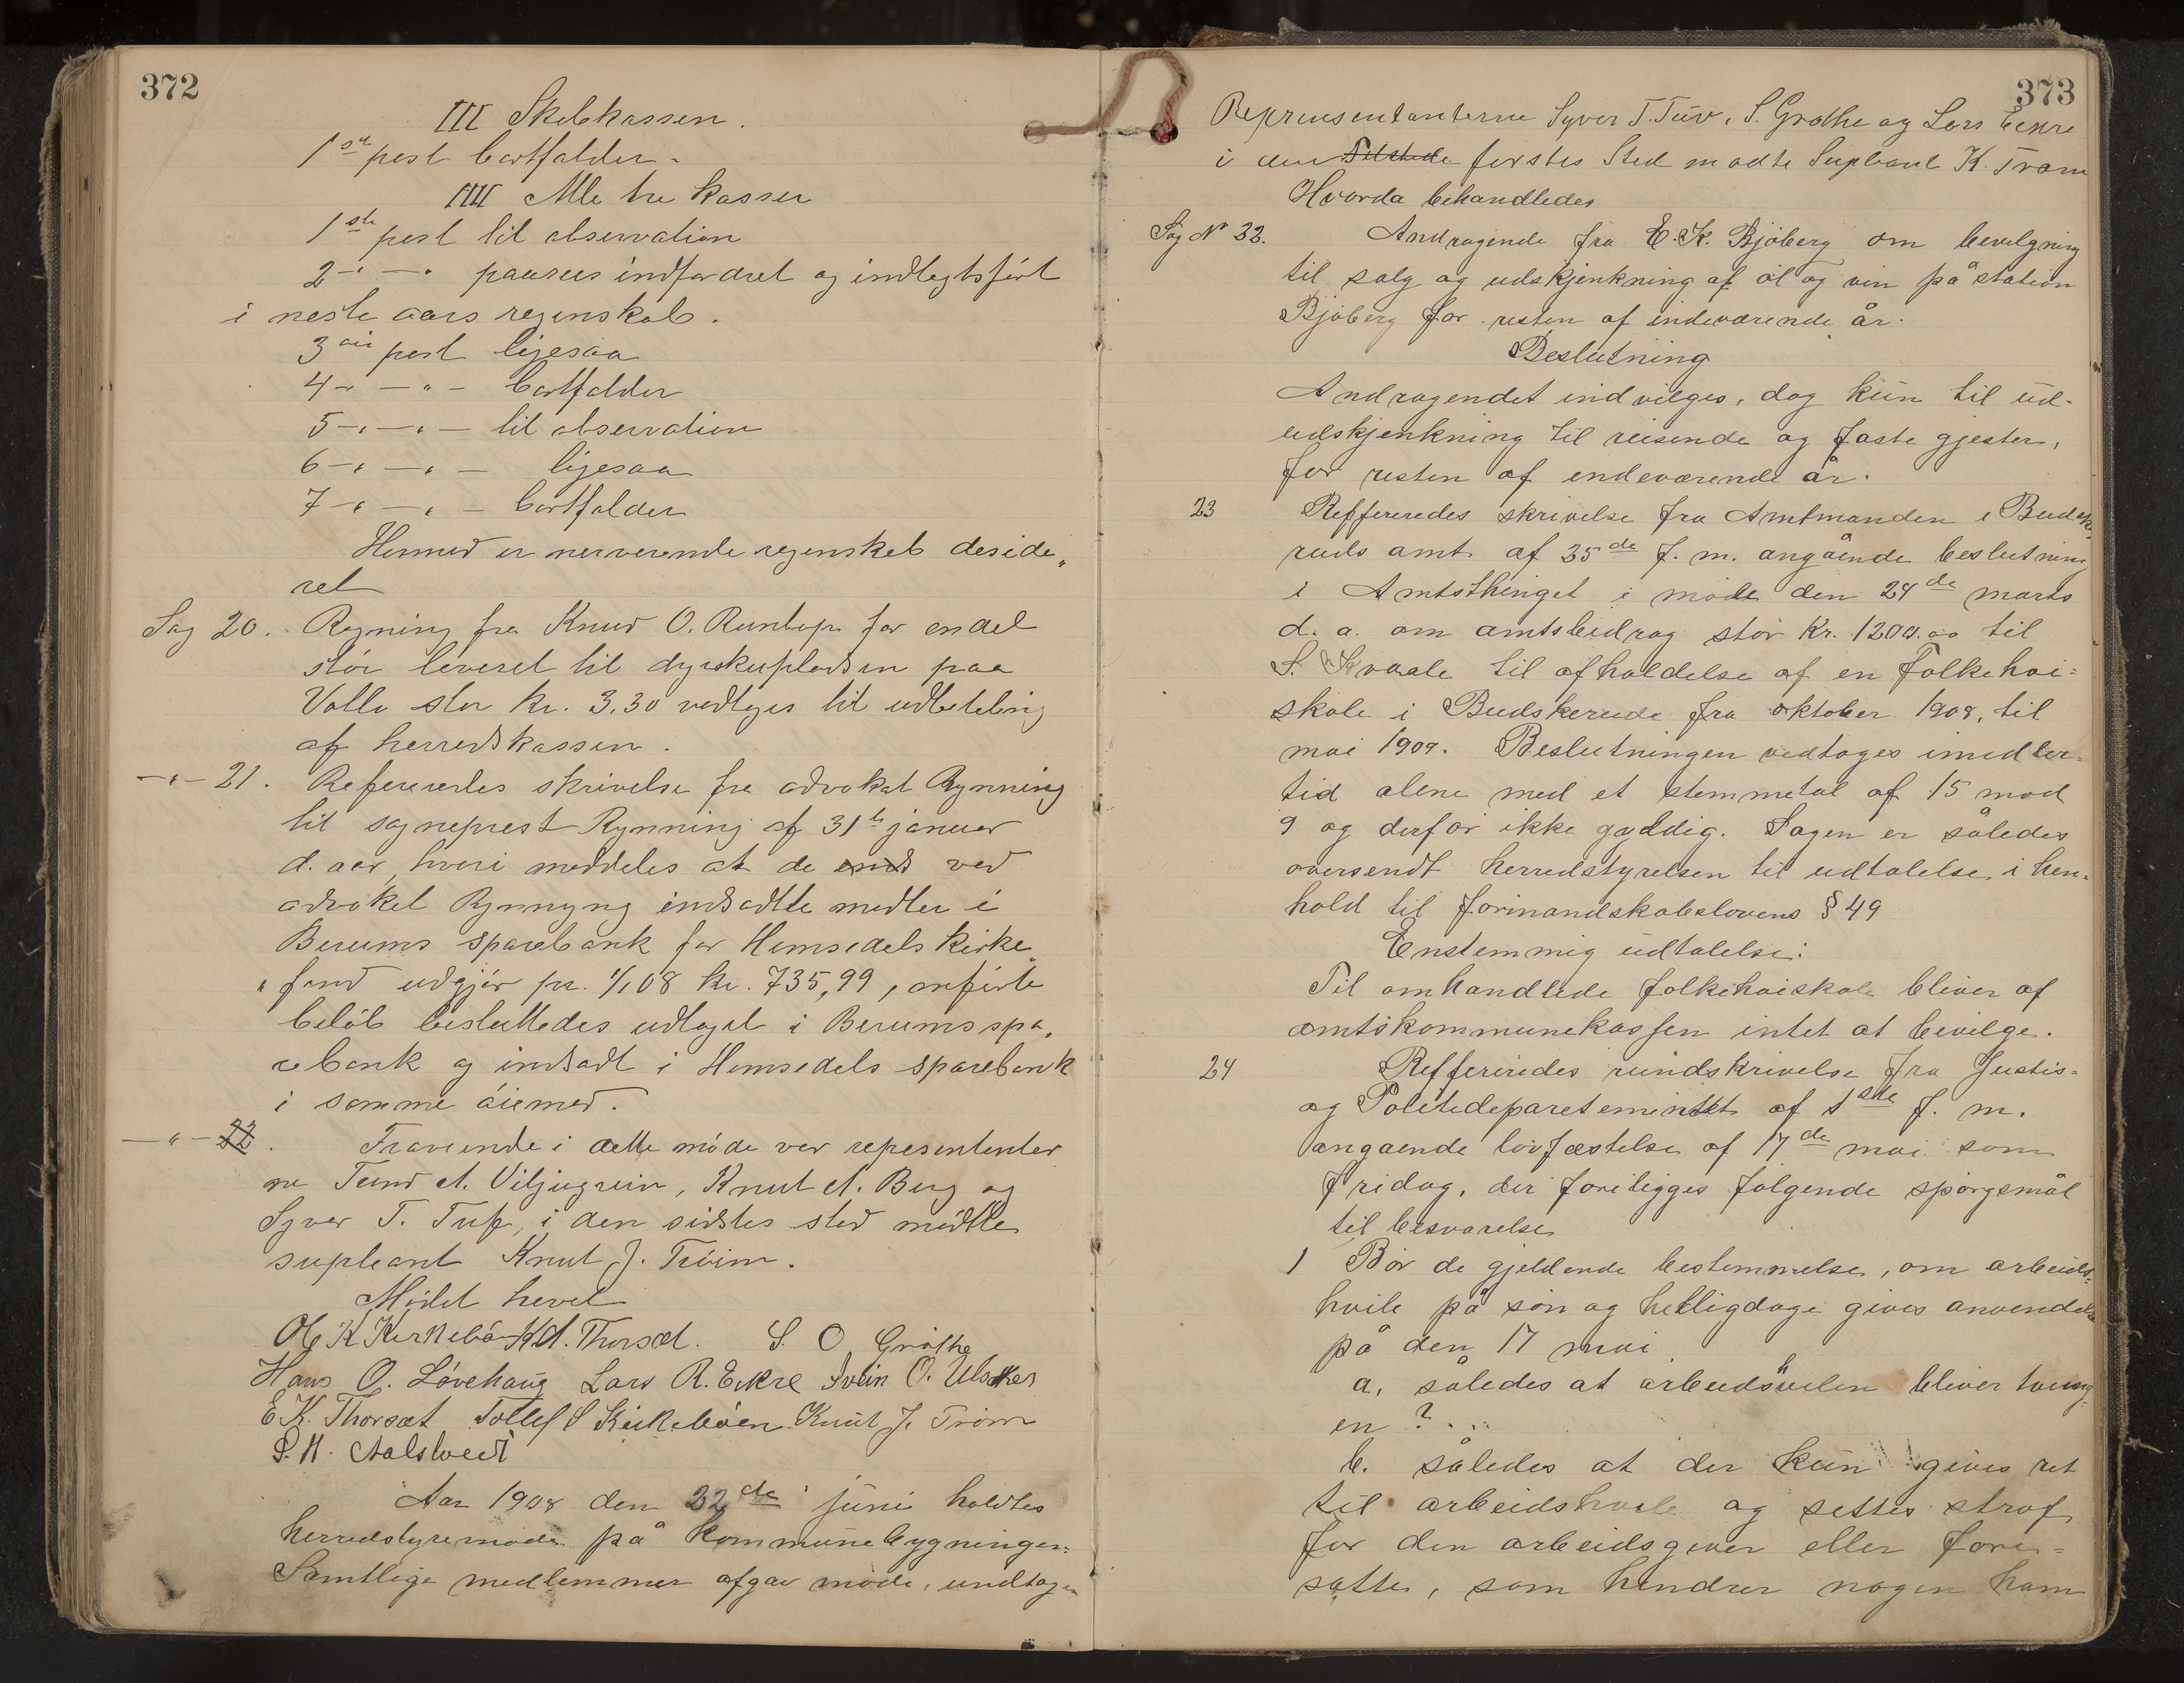 372
III Skolekassen.
1ste post bortfalder.
IIII Alle tre kasser
1ste post til observation
2 -"- -"- paasees indfordret og indtegtsført
i neste aars regenskab.
3die post ligesaa
4 -"- -"- bortfalder
5 -"- -"- til observation
6 -"- -"- ligesaa
7 -"- -"- bortfalder
Hermed er nerverende regenskab deside„
ret
Sag 20. Regning fra Knud O. for endel
stør leveret til dyrskuepladsen paa
stor kr. 3.30 vedtages til udbetaling
af herredskassen.
-"- 21. Refereredes skrivelse fra advokat Rynning
til sogneprest Rynning af 31te januar
d. aar, hvori meddeles at de ved
advokat Rynnyng indsadtte midler i
Berums sparebank for Hemsedels kirke„
„fond udgjør pr. 1/1 08 kr. 735,99, anførte
beløb besluttedes udtaget i Berums spa„
rebank og indsadt i Hemsedels sparebank
i samme øiemed.
-"- 22. Fraverende i dette møde var representanter
ne A. Viljugrein, Knut A. Berg og
Syver T. Tuf, i den sidstes sted mødtte
supleant Knut J. Trøim.
Mødet hevet
Ole K Kirkebø K A. Thorset. S. O Grøthe
Hans O. Løvehaug Lars R. Eekre Svein O. Ulsaker
E K. Thorset Tollef S Kirkebøen Knut J. Trøim
P. H. Aalstveit
Aar 1908 den 22de juni holdtes
herredstyremøde på kommunebygningen.
Samtlige medlemmer afgav møde, undtagen
373
Representanterne Syver T. Tuv, S. Grøthe og Lars Eekre
i den førstes Sted mødte Supleant K. Trøim
Hvorda behandledes
Sag No 22. Andragende fra E. K. Bjøberg om bevilgning
til salg og udskjenkning af øl og vin på station
Bjøberg for resten af indeværende år.
Beslutning
Andragendet indvilges, dog kun til ud-
udskjenkning til reisende og faste gjester,
for resten af endeværende år.
23 Reffereredes skrivelse fra Amtmanden i Budske
ruds amt af 25de f. m. angående beslutning
i Amtsthinget i møde den 24de marts
d. a. om amtsbidrag stor Kr. 1200.00 til
S. Kvaale til afholdelse af en Folkehøi=
skole i Budskerude fra oktober 1908, til
mai 1909. Beslutningen vedtoges imidler=
tid alene med et stemmetal af 15 mod
9 og derfor ikke gyldig. Sagen er således
oversendt herredstyrelsen til udtalelse i hen=
hold til formandskabslovens § 49
Enstemmig udtalelse:
Til omhandlede folkehøiskole bliver af
amtskommunekassen intet at bevilge.
24 Refferiredes rundskrivelse fra Justis=
og Politedeparetementet af 1ste f. m.
angaende lovfæstelse af 17de mai som
fridag, der foreligges følgende spørgsmål
til besvarelse
1 Bør de gjeldende bestemmelse, om arbeids=
hvile på søn og helligdage gives anvendelse
på den 17 mai
a, således at arbeidshvilen bliver tvung=
en ?
b. således at der kun gives ret
til arbeidshvile og settes straf
for den arbeidsgiver eller fore=
satte, som hindrer nogen ham